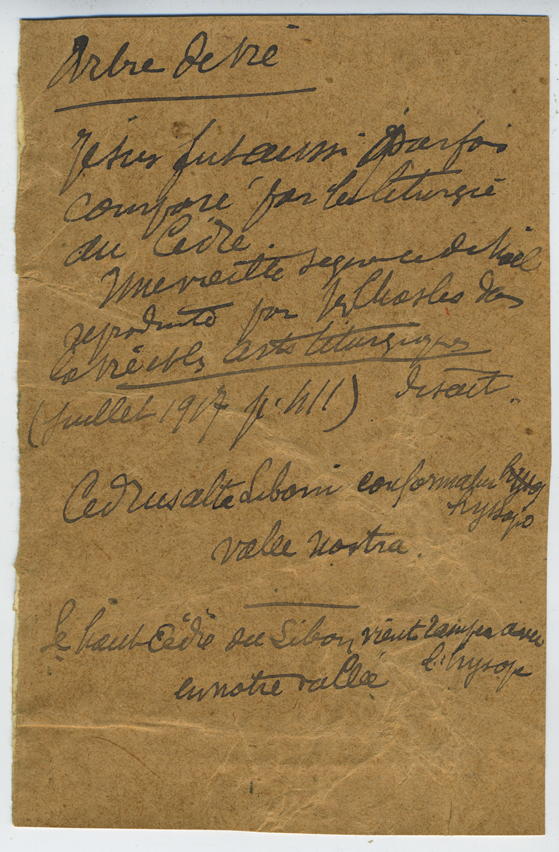 Arbre de vie
Jésus fut aussi parfois
comparé par les liturgie
au Cèdre.
Une vieille sequence de Noël
reproduite par Dr Chasles dans
la vie et les arts liturgiques
(Juillet 1917 p. 411) disait.
Cedrus alta Libani conformatur hyssop
hyssopo
valle nostra.
le haut Cèdre du Liban vient ramper avec
l'hysope
en notre vallée